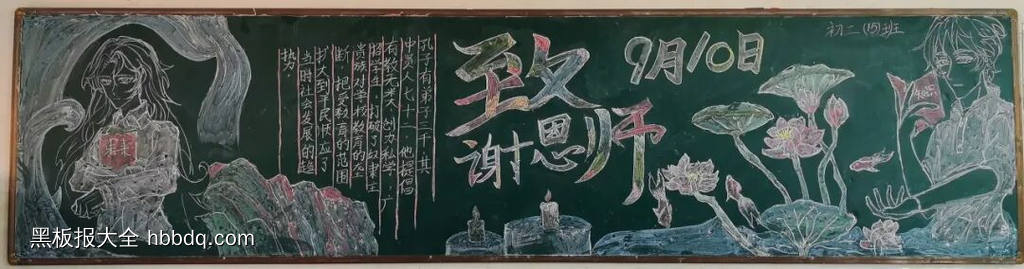 初二(15)班
9月10日
致
谢恩师
孔子有弟子三千,其
中贤人七十二,他提倡
有教无类,创办私学,广
招学生,打破了奴隶主
贵族对学校教育的垄
断,把受教育的范围
扩大到平民,顺应了
当时社会发展的趋
势。
黑板报大全 hbbdq.com